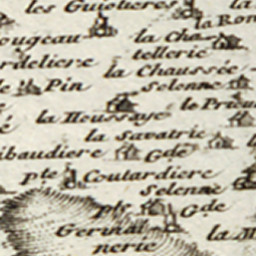 les Guiotieres la
la Ron
ougeau la Cha
tellerie
rdeliere
la Chaussée
le Pin Selonne
le Prieur
é la Houssaye
la Savatrie
ibaudiere Gde
pte Coutardiere
Selenne
pte Gde
Germai
nerie la